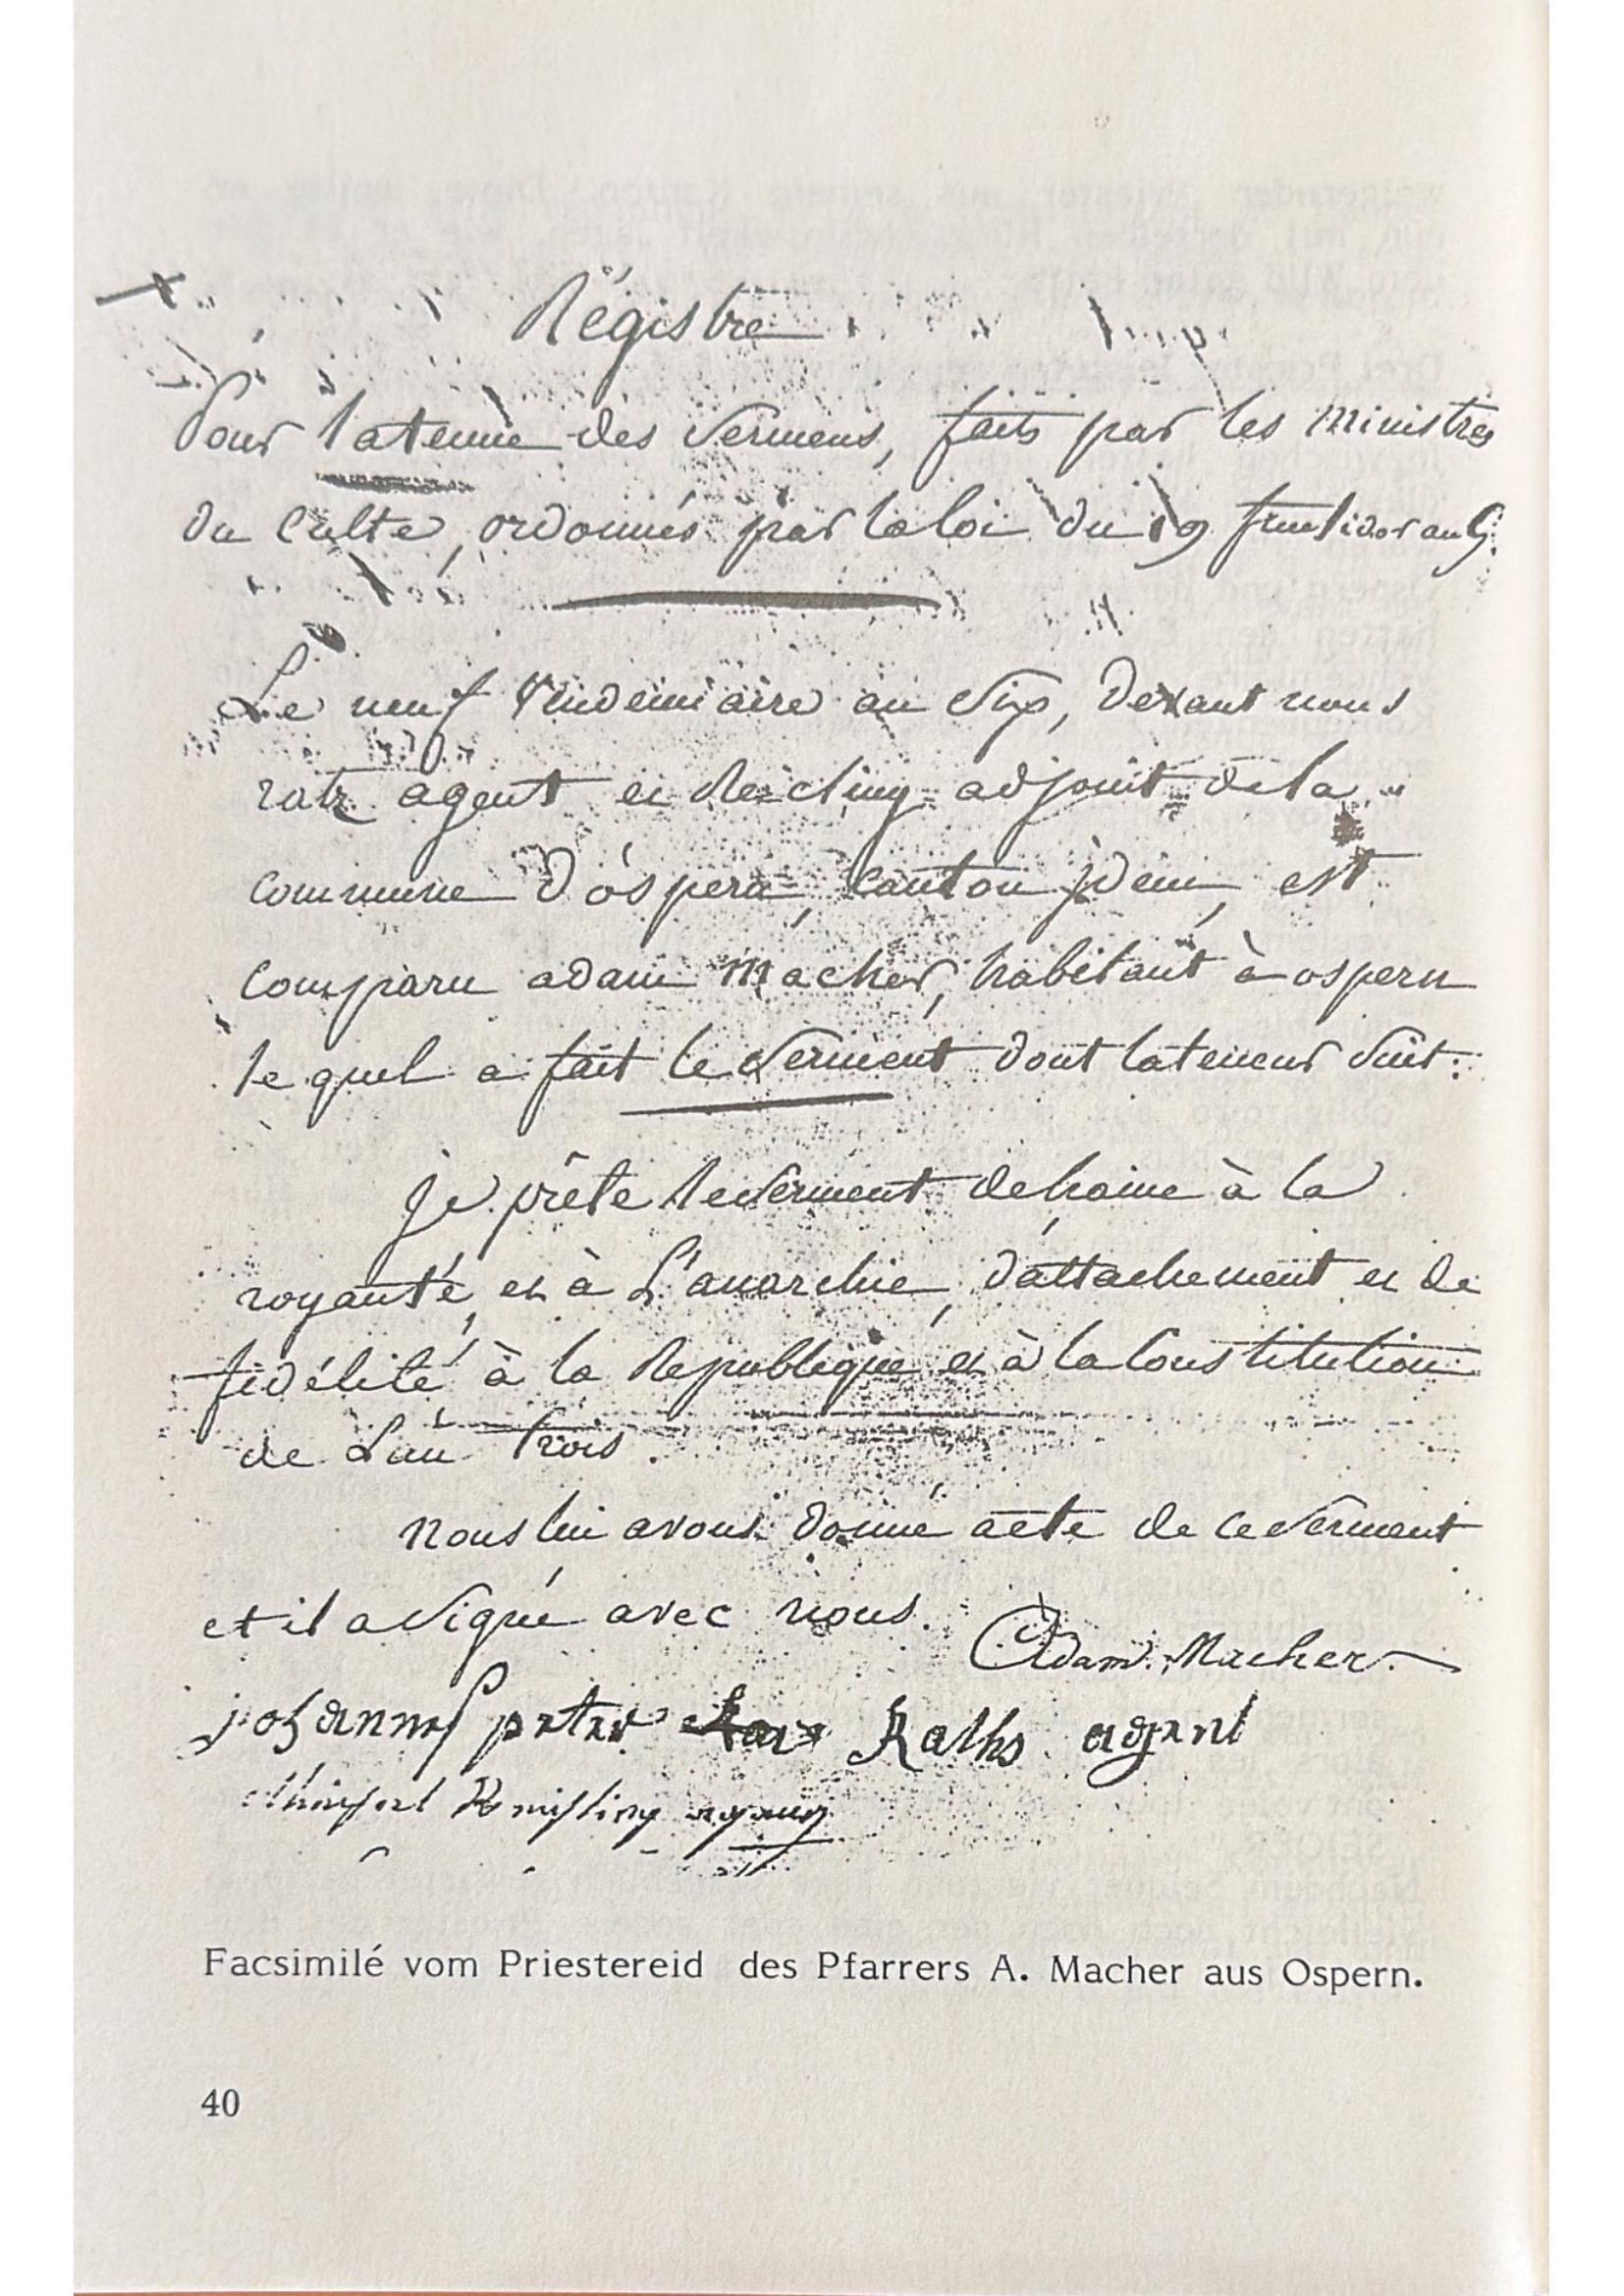 Régistre
Pour latenüe des Sermens, faits par les ministres
du Culte, ordonnés par la loi du 19 fructidor an 5.
Le neuf Vendemiaire an Six, devant nous
ratz agent et Reichling adjoint dela
commune d'ospern, Canton idem, est
comparu adam Macher, habitant à ospern
le quel a fait le Serment dont lateneur Suit:
je prête le Serment dehaine à la
royauté, et à L'anarchie, d'attachement et de
fidélité à la Republique et à la Constitution
de L'an trois.
nous lui avons donné acte de ce Serment
et il a Signé avec nous. Adam Macher
johannes peter Raths agent
Facsimilé vom Priestereid des Pfarrers A. Macher aus Ospern.
40